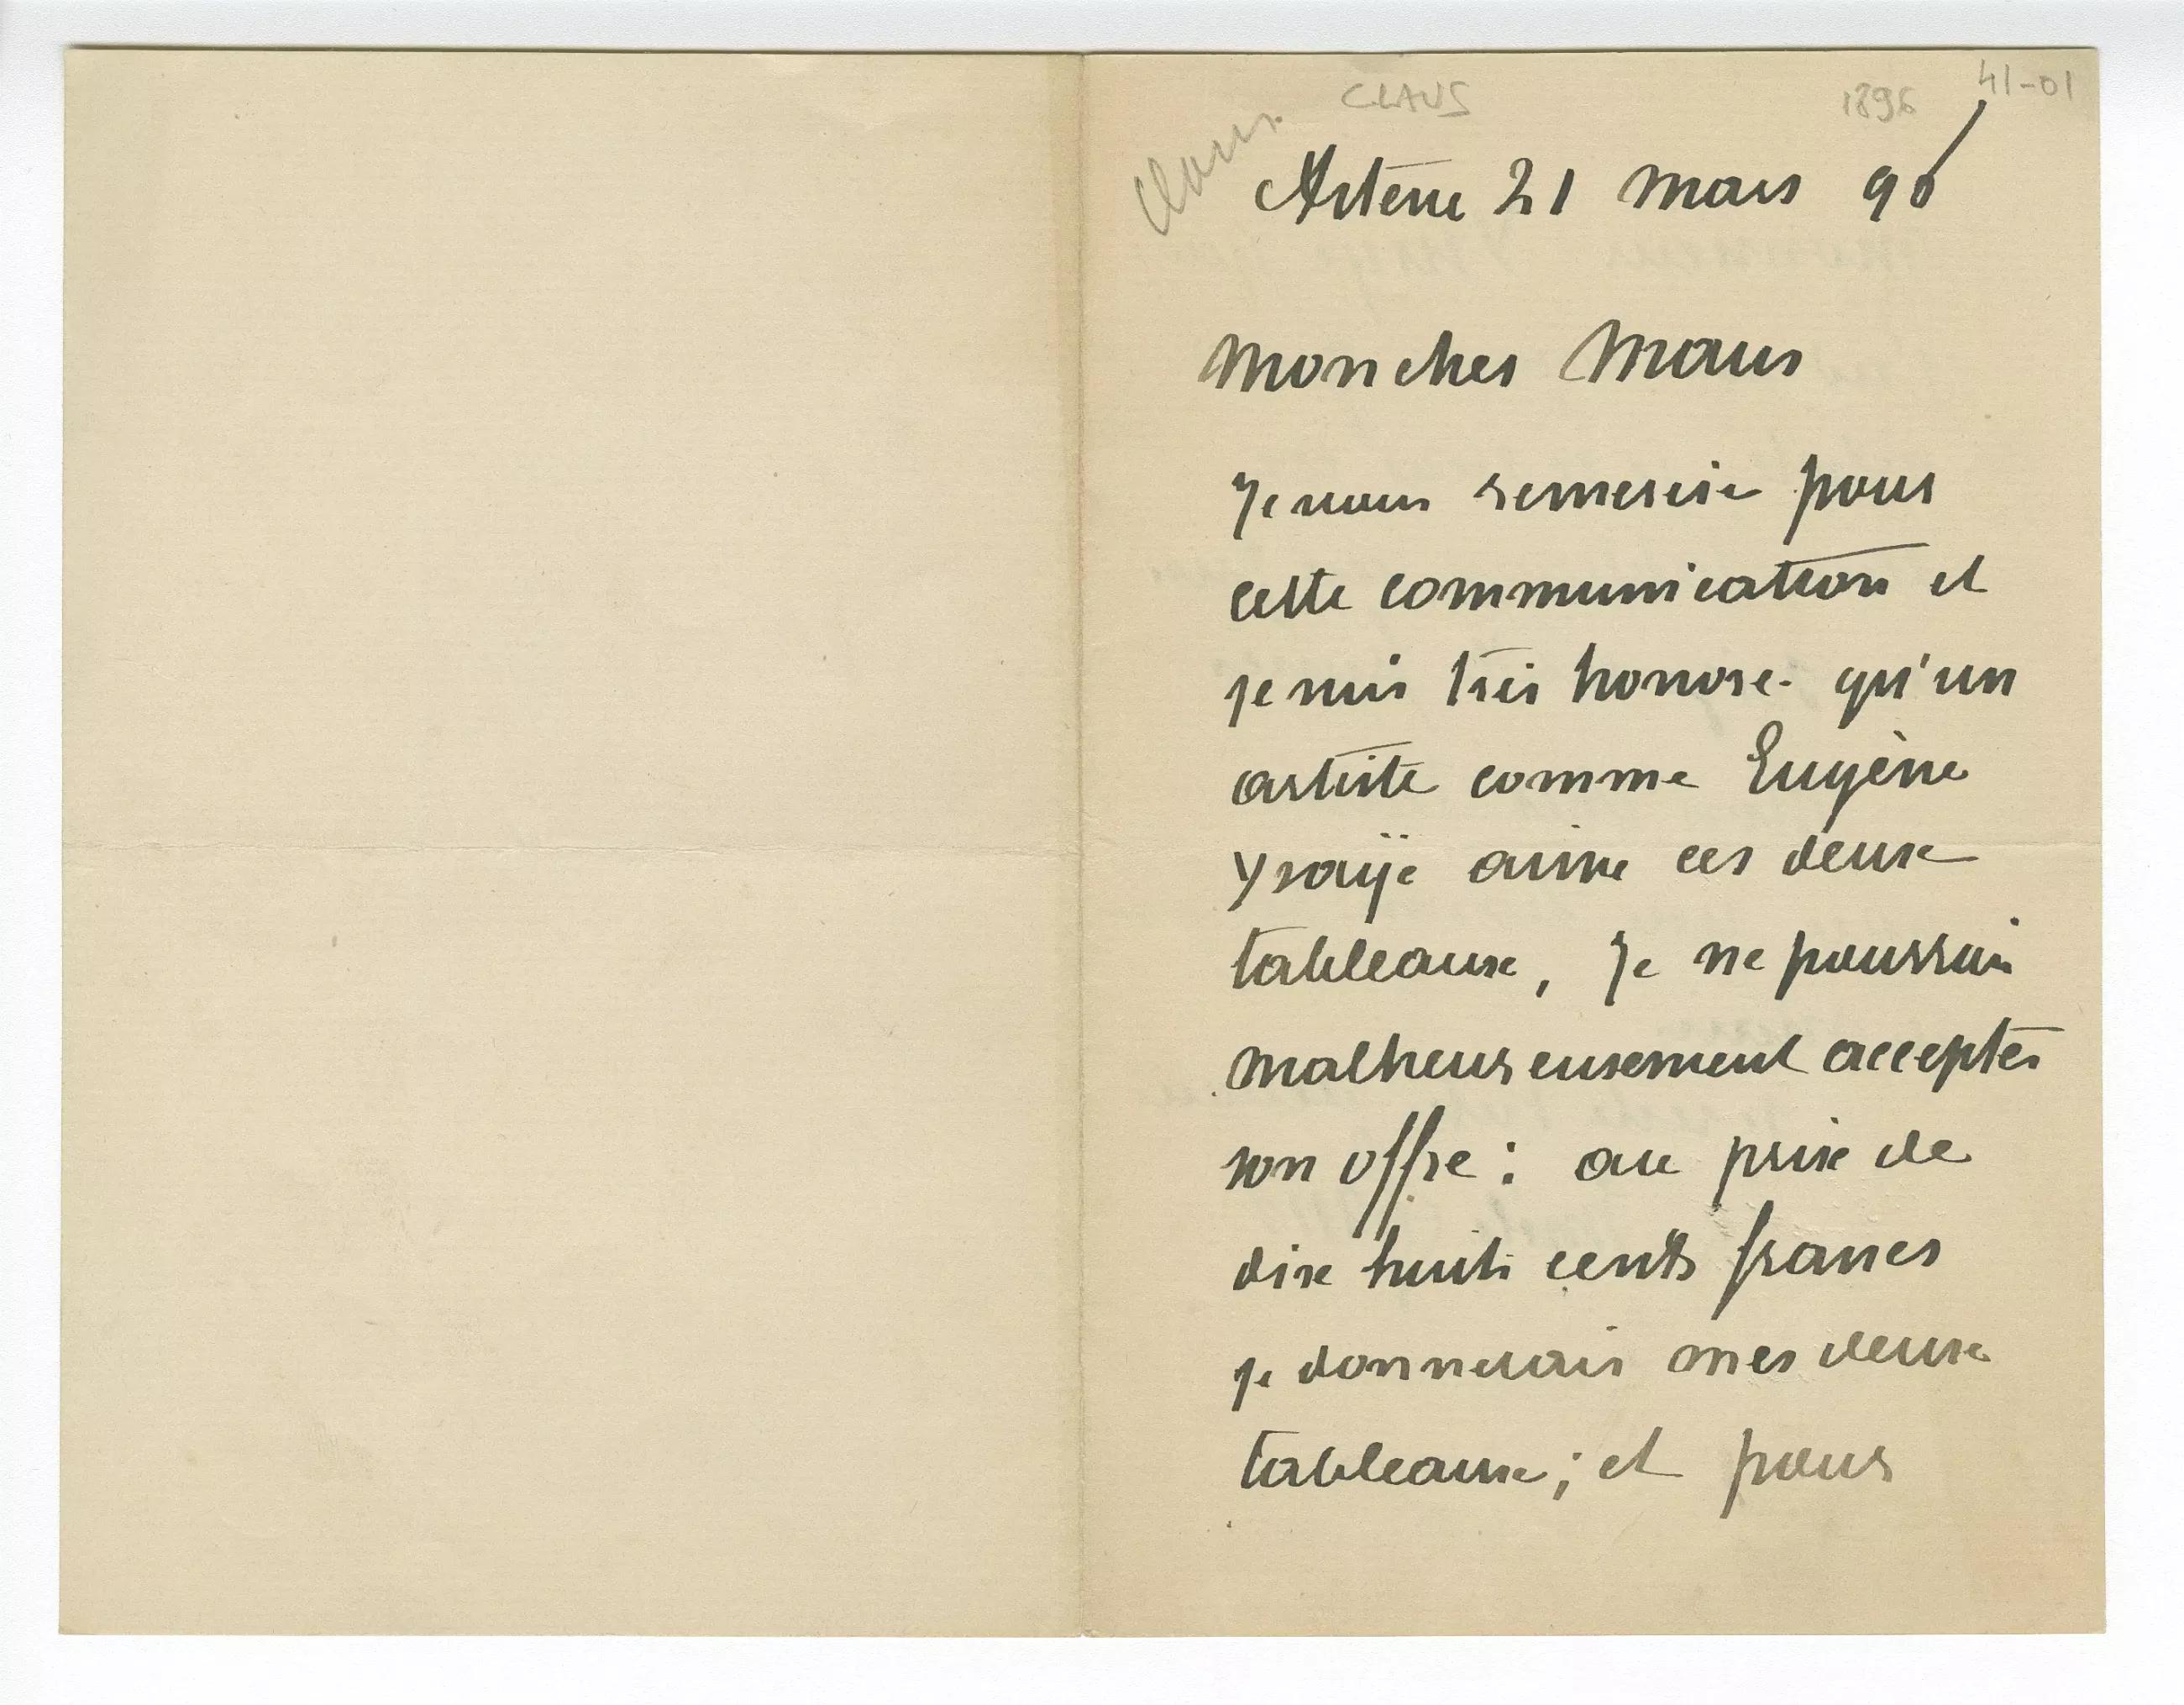 CLAUS
1896
41-01
Claus.
Astene 21 Mars 96
Mon cher Maus
Je vous remercie pour
cette communication et
je suis très honoré qu'un
artiste comme Eugène
Ysaÿe aime ces deux
tableaux, Je ne pourrai
malheureusement accepter
son offre : au prix de
dix huit cents francs
je donnerais mes deux
tableaux ; et pour